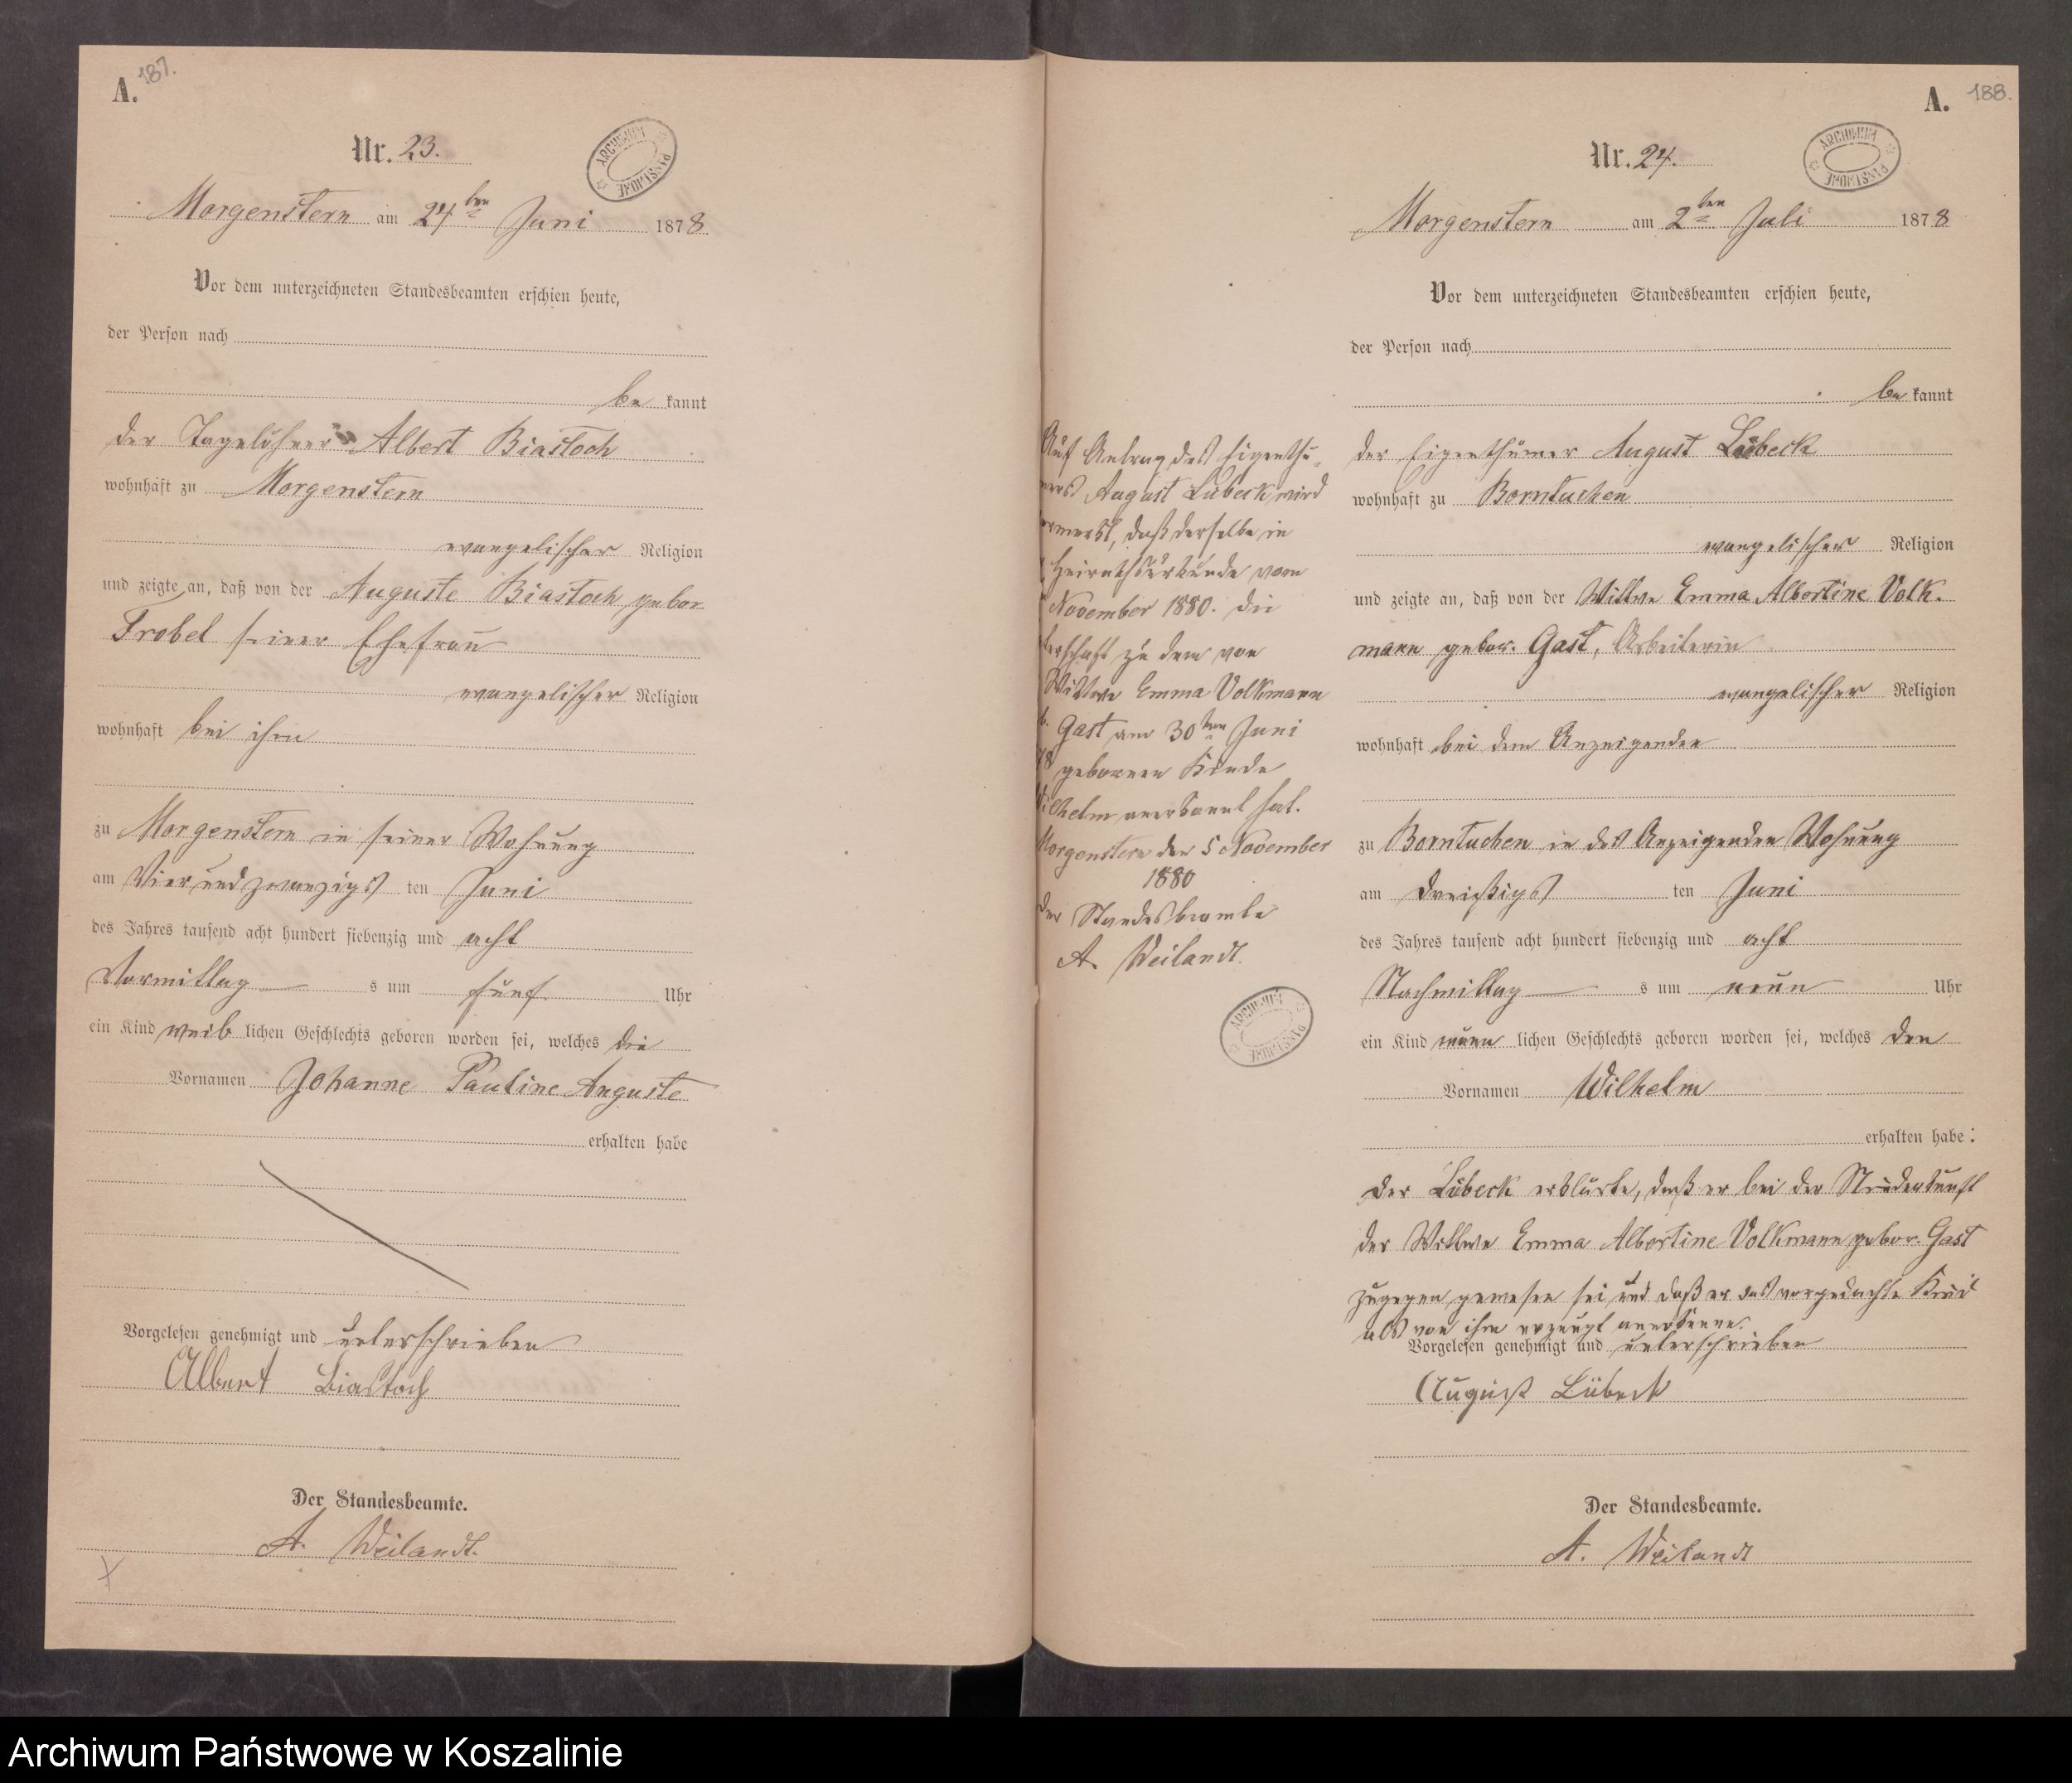 A. 187.
Nr. 23.
ARCHIWUM PAŃSTWOWE
Morgenstern am 24ten Juni 1878
Vor dem unterzeichneten Standesbeamten erschien heute,
der Person nach
be kannt
der Tagelöhner Albert Biastoch
wohnhaft zu Morgenstern
evangelischer Religion
und zeigte an, daß von der Auguste Biastoch gebor.
Trobel seiner Ehefrau
evangelischer Religion
wohnhaft bei ihm
zu Morgenstern in seiner Wohnung
am Vier und zwanzigs ten Juni
des Jahres tausend acht hundert siebenzig und acht
Vormittag s um fünf Uhr
ein Kind weib lichen Geschlechts geboren worden sei, welches die
Vornamen Johanne Pauline Auguste
erhalten habe
Vorgelesen genehmigt und unterschrieben
Albert Biastoch
Der Standesbeamte.
A. Weilandt.
Auf Antrag des Eigenthü-
mers August Lübeck wird
vermerkt, daß derselbe in
Heirathsurkunde vom
November 1880. die
terschaft zu dem von
Wittwe Emma Volkmann
b. Gast am 30ten Juni
78 gebornen Kinde
Wilhelm anerkannt hat.
Morgenstern den 5 November
1880
Der Standesbeamte
A. Weilandt.
ARCHIWUM PAŃSTWOWE
A. 188.
Nr. 24.
ARCHIWUM PAŃSTWOWE
Morgenstern am 2ten Juli 1878
Vor dem unterzeichneten Standesbeamten erschien heute,
der Person nach
be kannt
der Eigenthümer August Lübeck
wohnhaft zu Borntuchen
evangelischer Religion
und zeigte an, daß von der Wittwe Emma Albertine Volk-
mann gebor. Gast, Arbeiterin
evangelischer Religion
wohnhaft bei dem Anzeigenden
zu Borntuchen in des Anzeigenden Wohnung
am dreißigs ten Juni
des Jahres tausend acht hundert siebenzig und acht
Nachmittag s um neun Uhr
ein Kind männ lichen Geschlechts geboren worden sei, welches den
Vornamen Wilhelm
erhalten habe:
Der Lübeck erklärte, daß er bei der Niederkunft
der Wittwe Emma Albertine Volkmann gebor. Gast
zugegen gewesen sei und daß er das vorgedachte Kind
als von ihm erzeugt anerkenne.
Vorgelesen genehmigt und unterschrieben
August Lübeck
Der Standesbeamte.
A. Weilandt
Archiwum Państwowe w Koszalinie